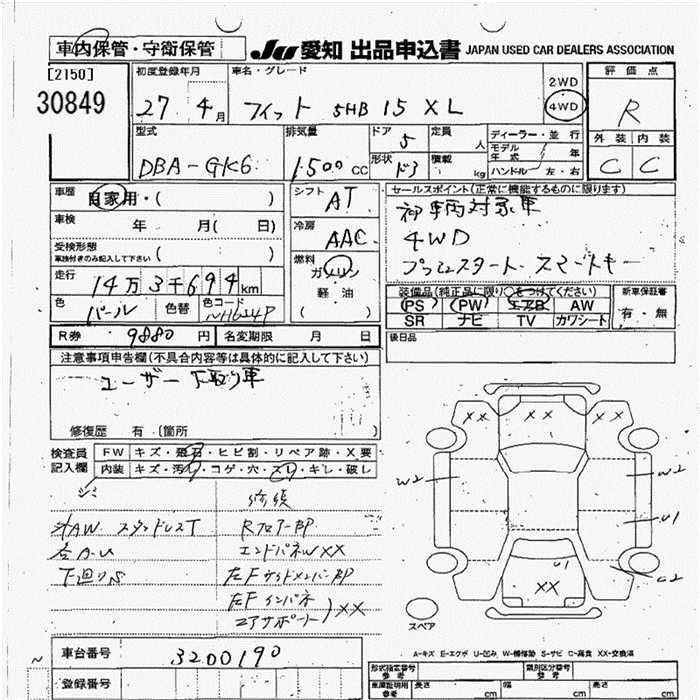 車内保管・守衛保管
JU 愛知 出品申込書 JAPAN USED CAR DEALERS ASSOCIATION
[2150]
30849
初度登録年月
27 4月
車名・グレード
フィット 5HB 15 XL
2WD
4WD
評価点
R
型式
DBA-GK6
排気量
1,500cc
ドア
5
定員
人
形状
積載
kg
ディーラー・並行
モデル年式
年
ハンドル 左・右
外装 内装
C C
車歴
自家用・( )
車検
年 月( 日)
受検形態
車検付きのみ記入して下さい
( )
走行
14万3千694km
色
パール
色替
色コード
NH624P
シフト
AT
冷房
AAC
燃料
ガソリン
軽油
( )
セールスポイント(正常に機能するものに限ります)
4WD
プッシュスタート スマートキー
装備品(純正品に限り○をつけてください)
PS PW エアB AW
SR ナビ TV カワシート
新車保証書
有・無
R券 9880円
名変期限 月 日
後日品
注意事項申告欄(不具合内容等は具体的に記入して下さい)
ユーザー下取り車
修復歴 有 (箇所
検査員記入欄
FW キズ・飛石・ヒビ割・リペア跡・X要
内装 キズ・汚れ・コゲ・穴・スレ・キレ・破レ
シミ
AW
下廻りS
RフロアーAP
エンドパネWXX
左FサイドメンバーAP
左Fインパネ
コアサポート XX
XX XX XX
W2
W2
U1
U1
C2
XX
スペア
A-キズ E-エクボ U-凹み W-補修跡 S-サビ C-腐食 XX-交換済
車台番号
3200190
登録番号
形式指定番号
参考
類別区分番号
参考
車庫証明用
参考
長さ cm 幅 cm 高さ cm